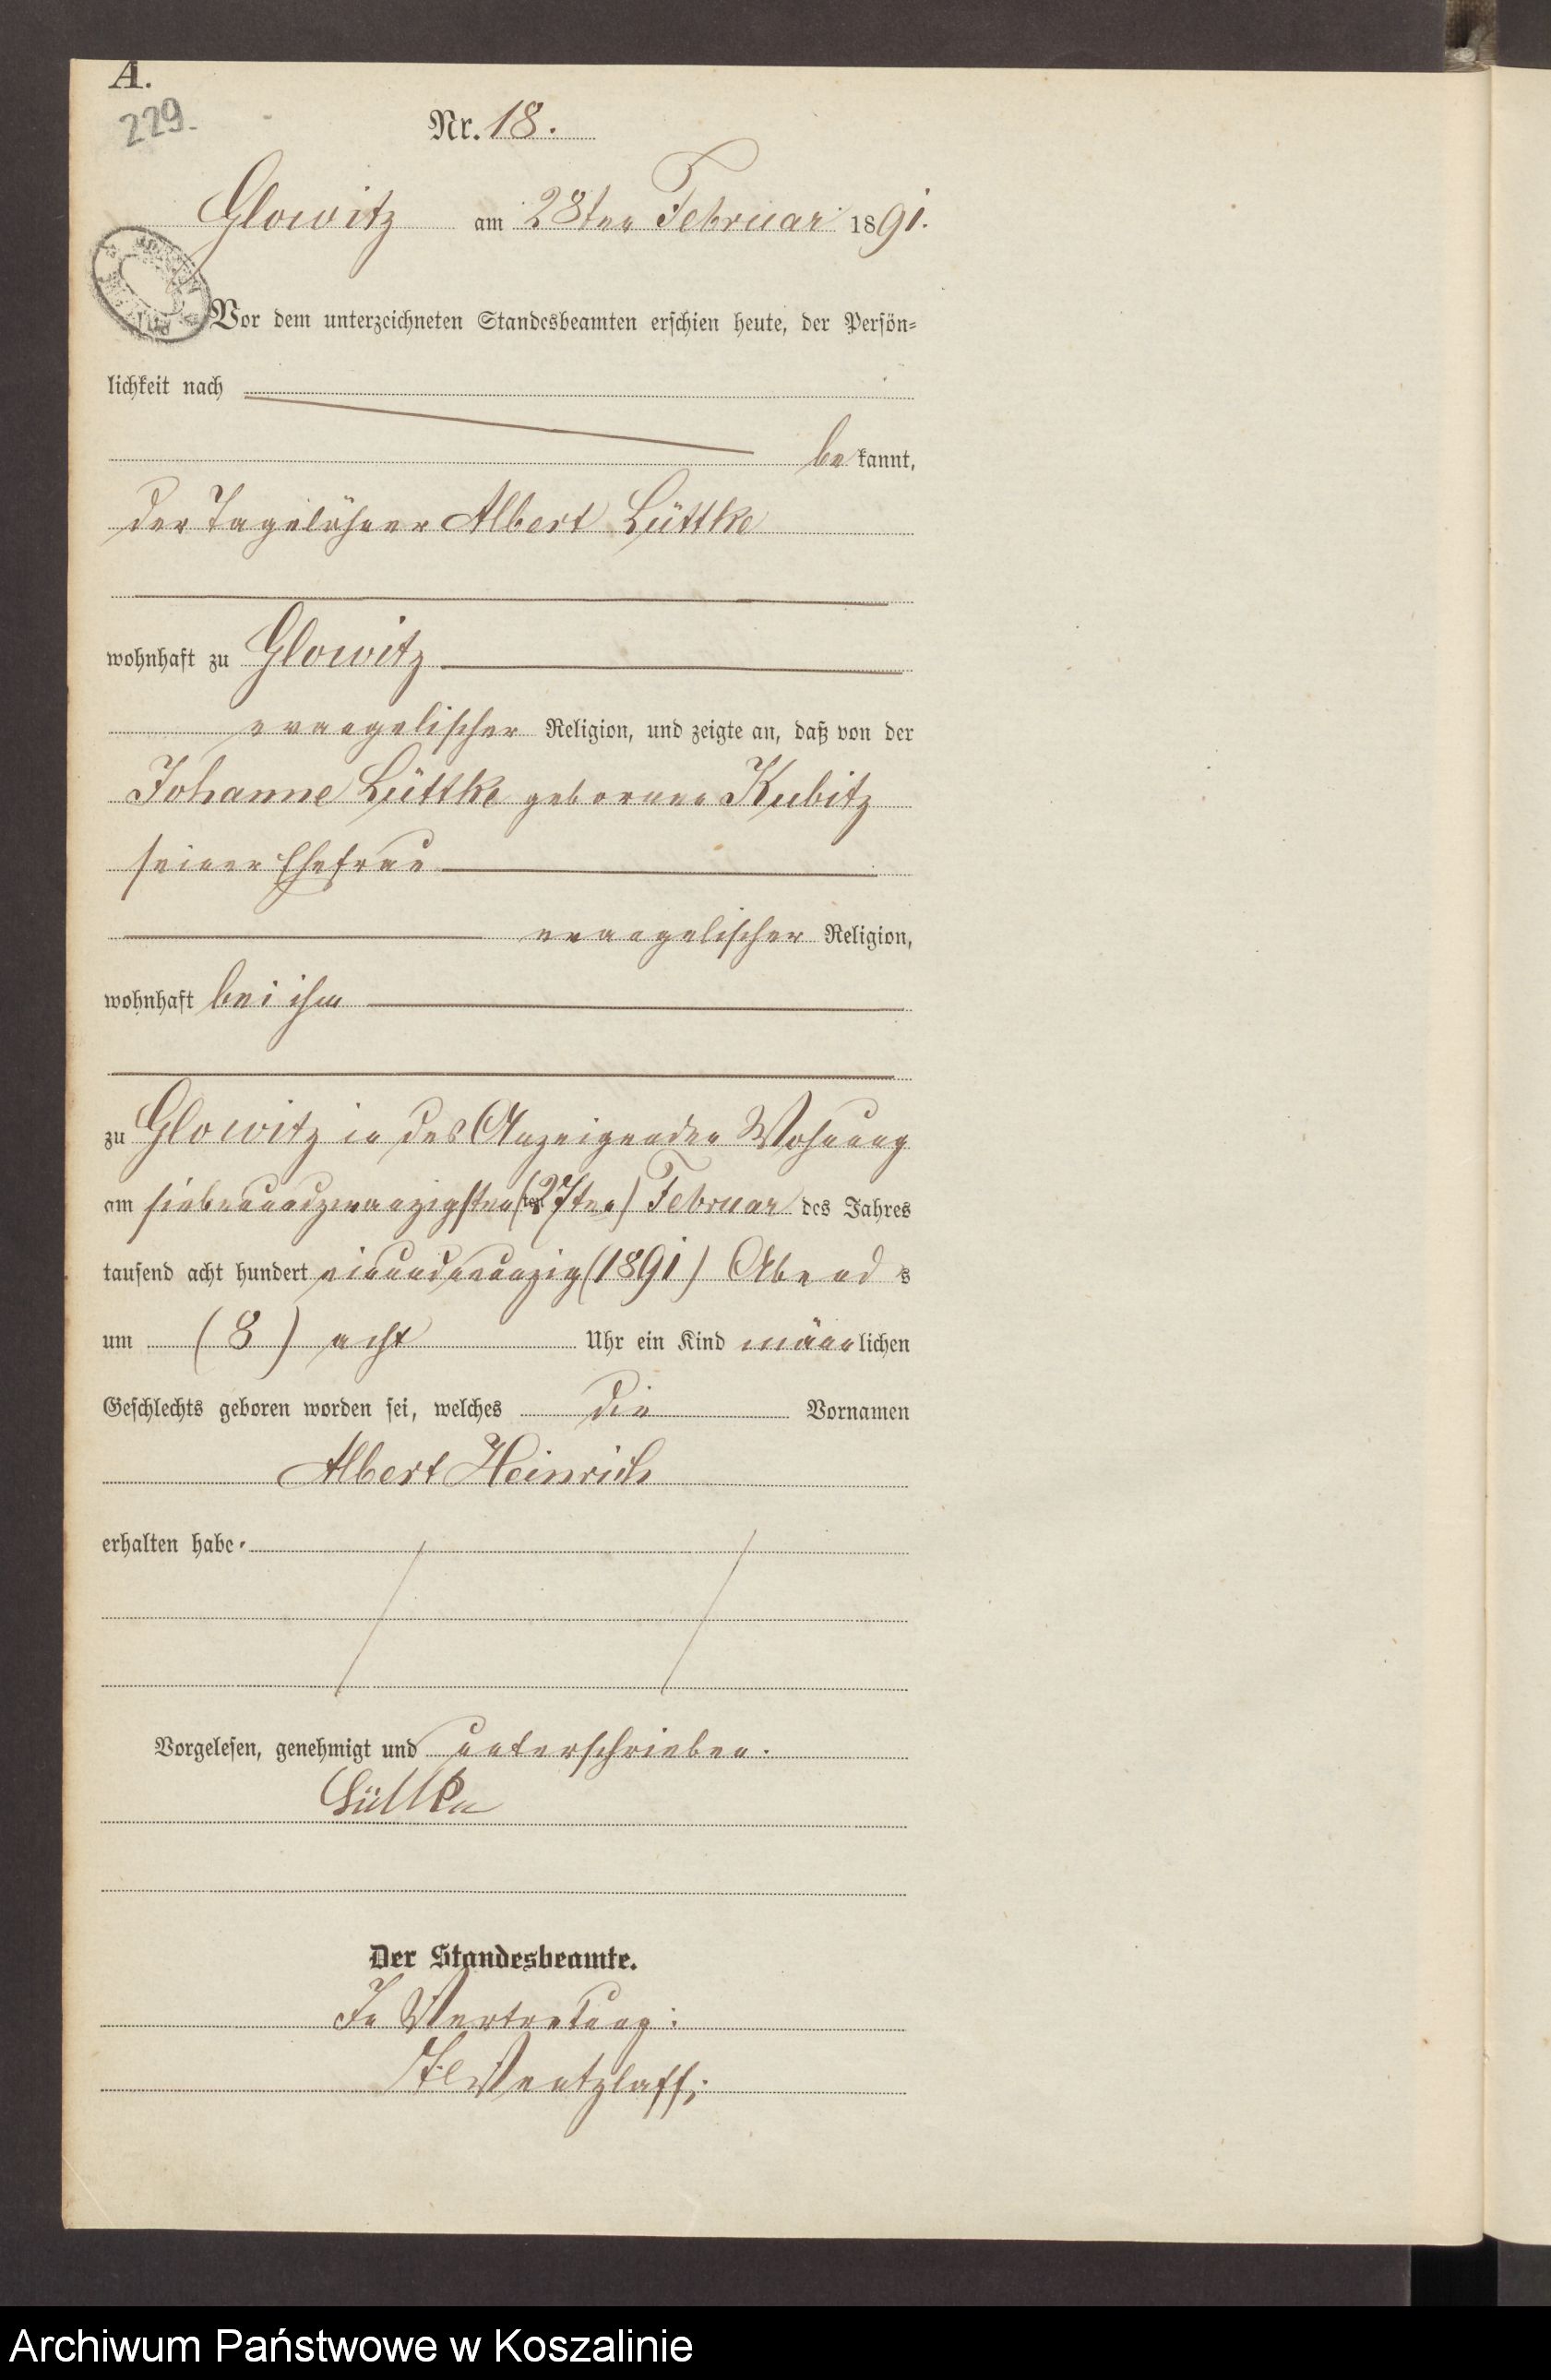 A.
229.
Nr. 18.
Glowitz am 28ten Februar 1891.
Vor dem unterzeichneten Standesbeamten erschien heute, der Persön=
lichkeit nach
bekannt,
der Tagelöhner Albert Lüttke
wohnhaft zu Glowitz
evangelischer Religion, und zeigte an, daß von der
Johanne Lüttke geborene Kubitz
seiner Ehefrau
evangelischer Religion,
wohnhaft bei ihm
zu Glowitz in des Anzeigenden Wohnung
am siebenundzwanzigsten (27ten) Februar des Jahres
tausend acht hundert einundneunzig (1891) Abends
um (8) acht Uhr ein Kind männlichen
Geschlechts geboren worden sei, welches die Vornamen
Albert Heinrich
erhalten habe.
Vorgelesen, genehmigt und unterschrieben.
Lüttke
Der Standesbeamte.
In Vertretung:
Wentzlaff.
Archiwum Państwowe w Koszalinie